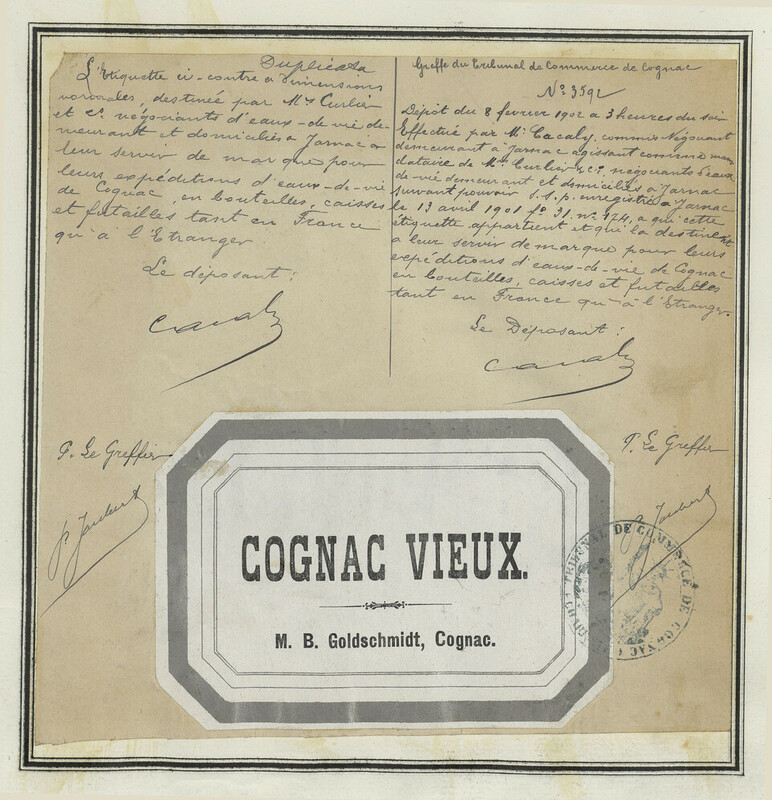 Duplicata
L'Etiquette ci-contre a dimensions
normales, destinée par Mrs Curlier
et Cie négociants d'eaux-de-vie de-
meurant et domiciliés à Jarnac a
leur servir de marque pour
leurs expéditions d'eaux-de-vie
de Cognac, en bouteilles, caisses
et futailles tant en France
qu'à l'Etranger
Le déposant :
Cavaly
P. Le Greffier
Greffe du Tribunal de Commerce de Cognac
No 3592
Dépôt du 8 février 1902 à 3 heures du soir
Effectué par Mr Cacaly, commis Négociant
demeurant à Jarnac agissant comme man
dataire de Mrs Curlier & Cie, négociants d'eaux
de-vie demeurant et domiciliés à Jarnac
suivant pouvoir s.s.p. enregistré à Jarnac
le 13 avril 1901 fo 31. no 174, a qui cette
étiquette appartient et qui la destinent
a leur servir de marque pour leurs
expéditions d'eaux-de-vie de Cognac
en bouteilles, caisses et futailles
tant en France qu'à l'Etranger.
Le Déposant :
Cavaly
P. Le Greffier
COGNAC VIEUX.
M. B. Goldschmidt, Cognac.
TRIBUNAL DE COMMERCE DE COGNAC